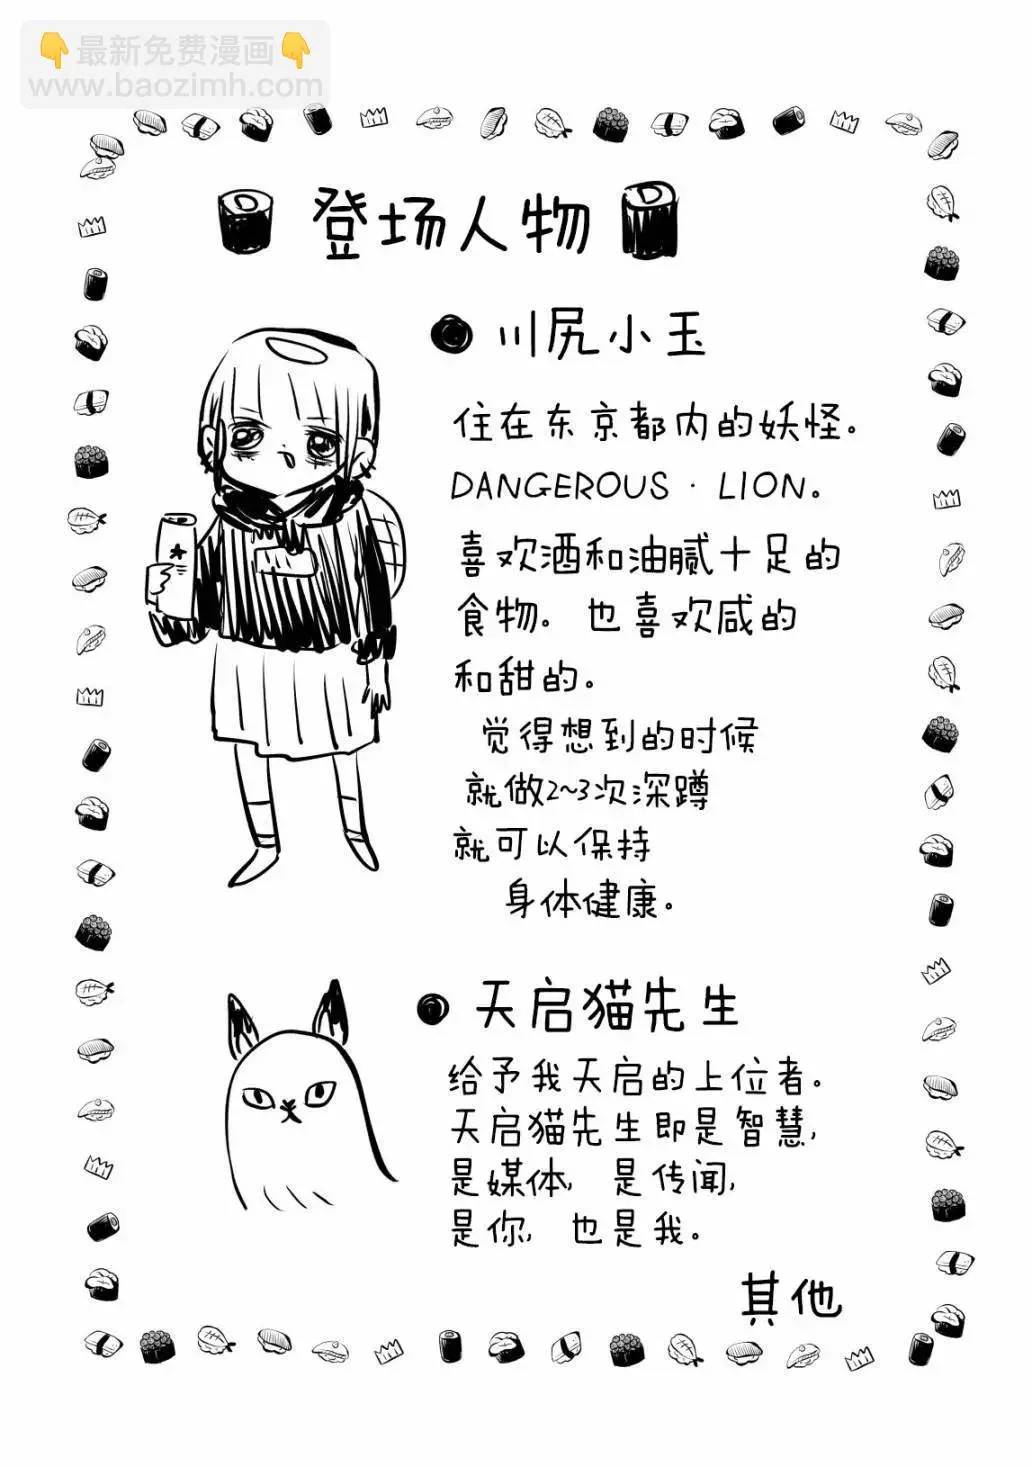 👇最新免费漫画👇
www.baozimh.com
登场人物
川尻小玉
住在东京都内的妖怪。
DANGEROUS · LION。
喜欢酒和油腻十足的
食物。也喜欢咸的
和甜的。
觉得想到的时候
就做2~3次深蹲
就可以保持
身体健康。
天启猫先生
给予我天启的上位者。
天启猫先生即是智慧,
是媒体, 是传闻,
是你, 也是我。
其他